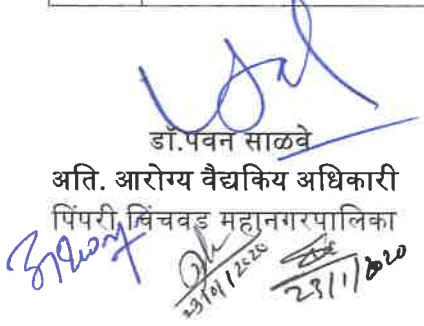 डॉ.पवन साळवे
अति. आरोग्य वैद्यकिय अधिकारी
पिंपरी चिंचवड महानगरपालिका
23/01/2020
23/1/2020